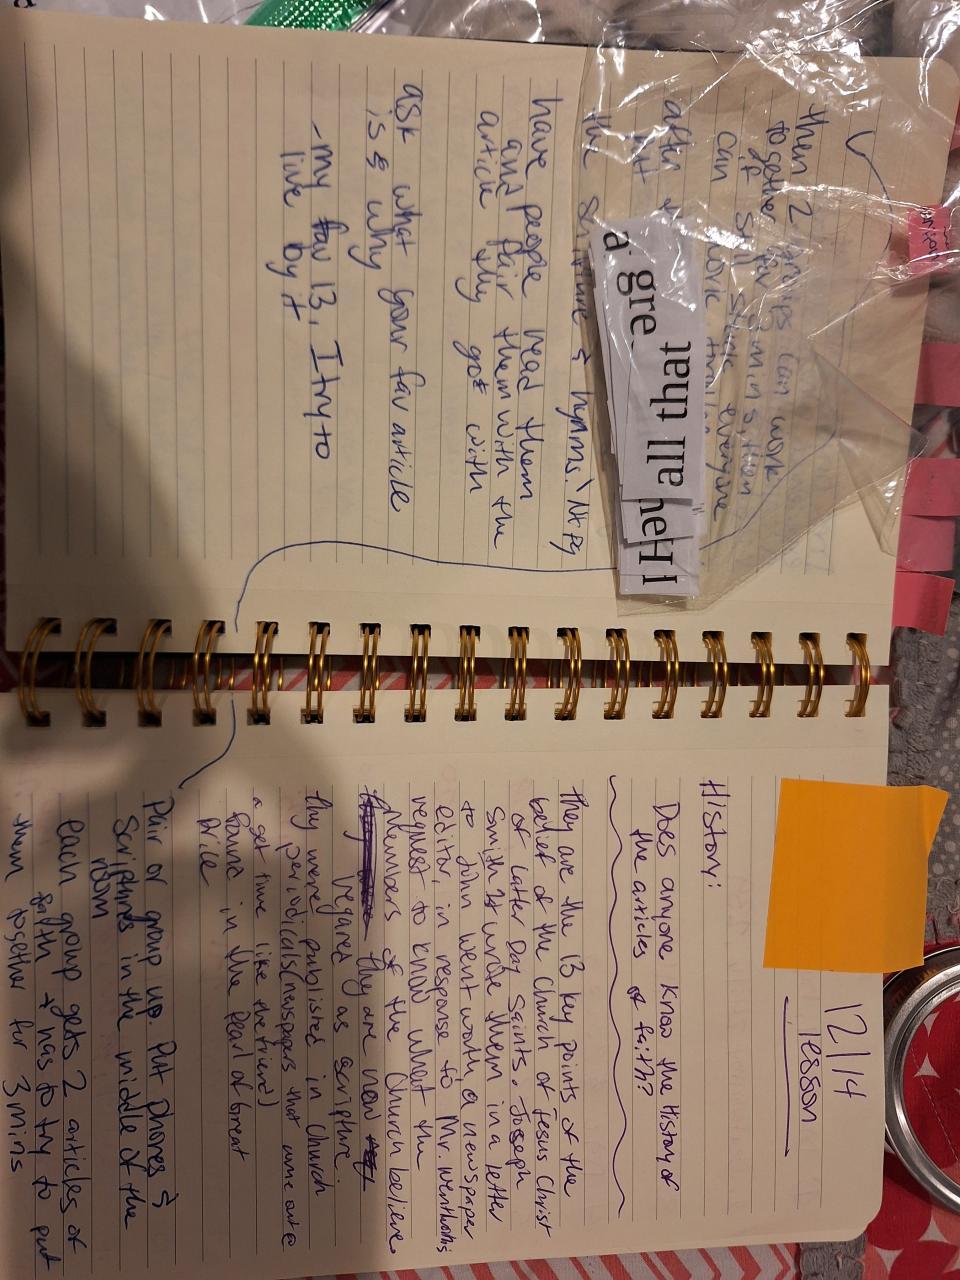 12/14
lesson
History:
Does anyone know the History of
the articles of faith?
They are the 13 key points of the
belief of the Church of Jesus Christ
of Latter Day Saints. Joseph
Smith wrote them in a letter
to John Wentworth, a newspaper
editor, in response to Mr. Wentworth's
request to know what the
Members of the Church believe
They are now
regared as scripture.
they were published in Church
periodicals (newspapers that come out @
a set time like the friend)
found in the Pearl of Great
Price
Pair or group up. Put phones &
scriptures in the middle of the
room
each group gets 2 articles of
faith & has to try to put
them together for 3 mins
then 2 groups can work
together for 3 mins, then
if still stuck everyone
can work
after
the scripture & hymns!
have people read them
and pair them with the
article they got with
ask what your fav article
is & why
- my fav 13, I try to
live by it
a gre
all that
I He